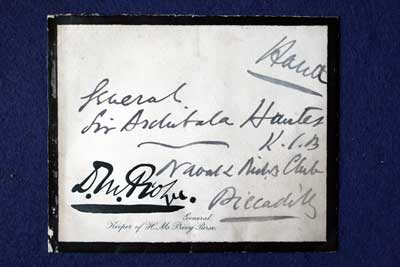 Hand
General
Sir Archibald Hunter
K.C.B
Naval & Clubs
Piccadilly
D. M. Probyn.
General
Keeper of H. M's Privy Purse.